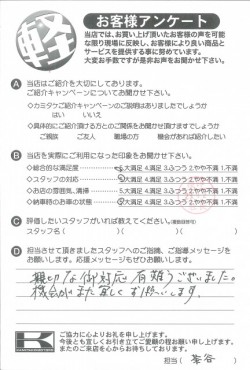 軽
お客様アンケート
当店では、お買い上げ頂いたお客様の声を可能
な限り現場に反映し、お客様により良い商品と
サービスを提供する事に努めています。
大変お手数ですが是非お声をお聞かせ下さい。
A 当店はご紹介を大切にしております。
ご紹介キャンペーンについてお聞かせ下さい。
◇カミタケご紹介キャンペーンのご説明はありましたでしょうか
はい いいえ
◇具体的にご紹介頂ける方とのご関係をお聞かせ頂けますでしょうか
ご親族 ご友人 職場の方 機会があれば紹介したい
B 当店を実際にご利用になった印象をお聞かせ下さい。
◇総合的な満足度 5.大満足 4.満足 3.ふつう 2.やや不満 1.不満
◇スタッフの対応 5.大満足 4.満足 3.ふつう 2.やや不満 1.不満
◇お店の雰囲気、清掃 5.大満足 4.満足 3.ふつう 2.やや不満 1.不満
◇納車時のお車の状態 5.大満足 4.満足 3.ふつう 2.やや不満 1.不満
C 評価したいスタッフがいれば教えてください。
スタッフ名( )( )( )
D 担当させて頂きましたスタッフへのご指摘、ご指導メッセージを
お願いします。お叱りのメッセージもお願いします。
親切な御対応有難うございました。
機会がまた宜しくお願いします。
K
ご協力に心よりお礼を申し上げます。
今後とも宜しくお引き立てご愛顧の程お願い申し上げます。
またのご来店を心からお待ちしております。
担当(